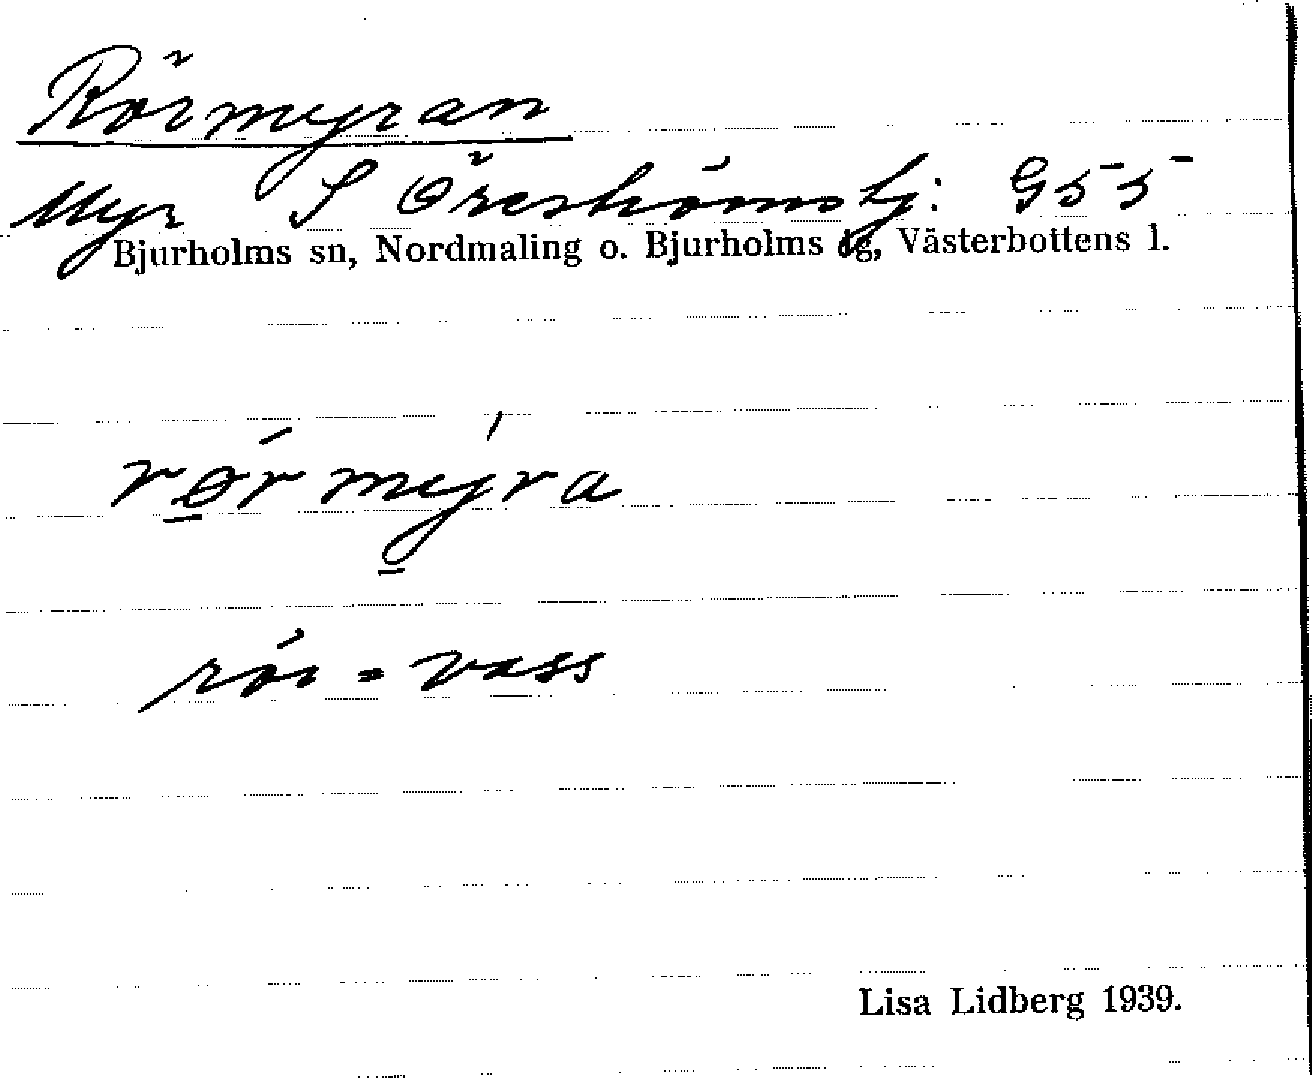 Rörmyran
Myr S Öreströmstj: G55
Bjurholms sn, Nordmaling o. Bjurholms tg, Västerbottens l.
rǿ̲rmỳ̲ra
rör = vass
Lisa Lidberg 1939.